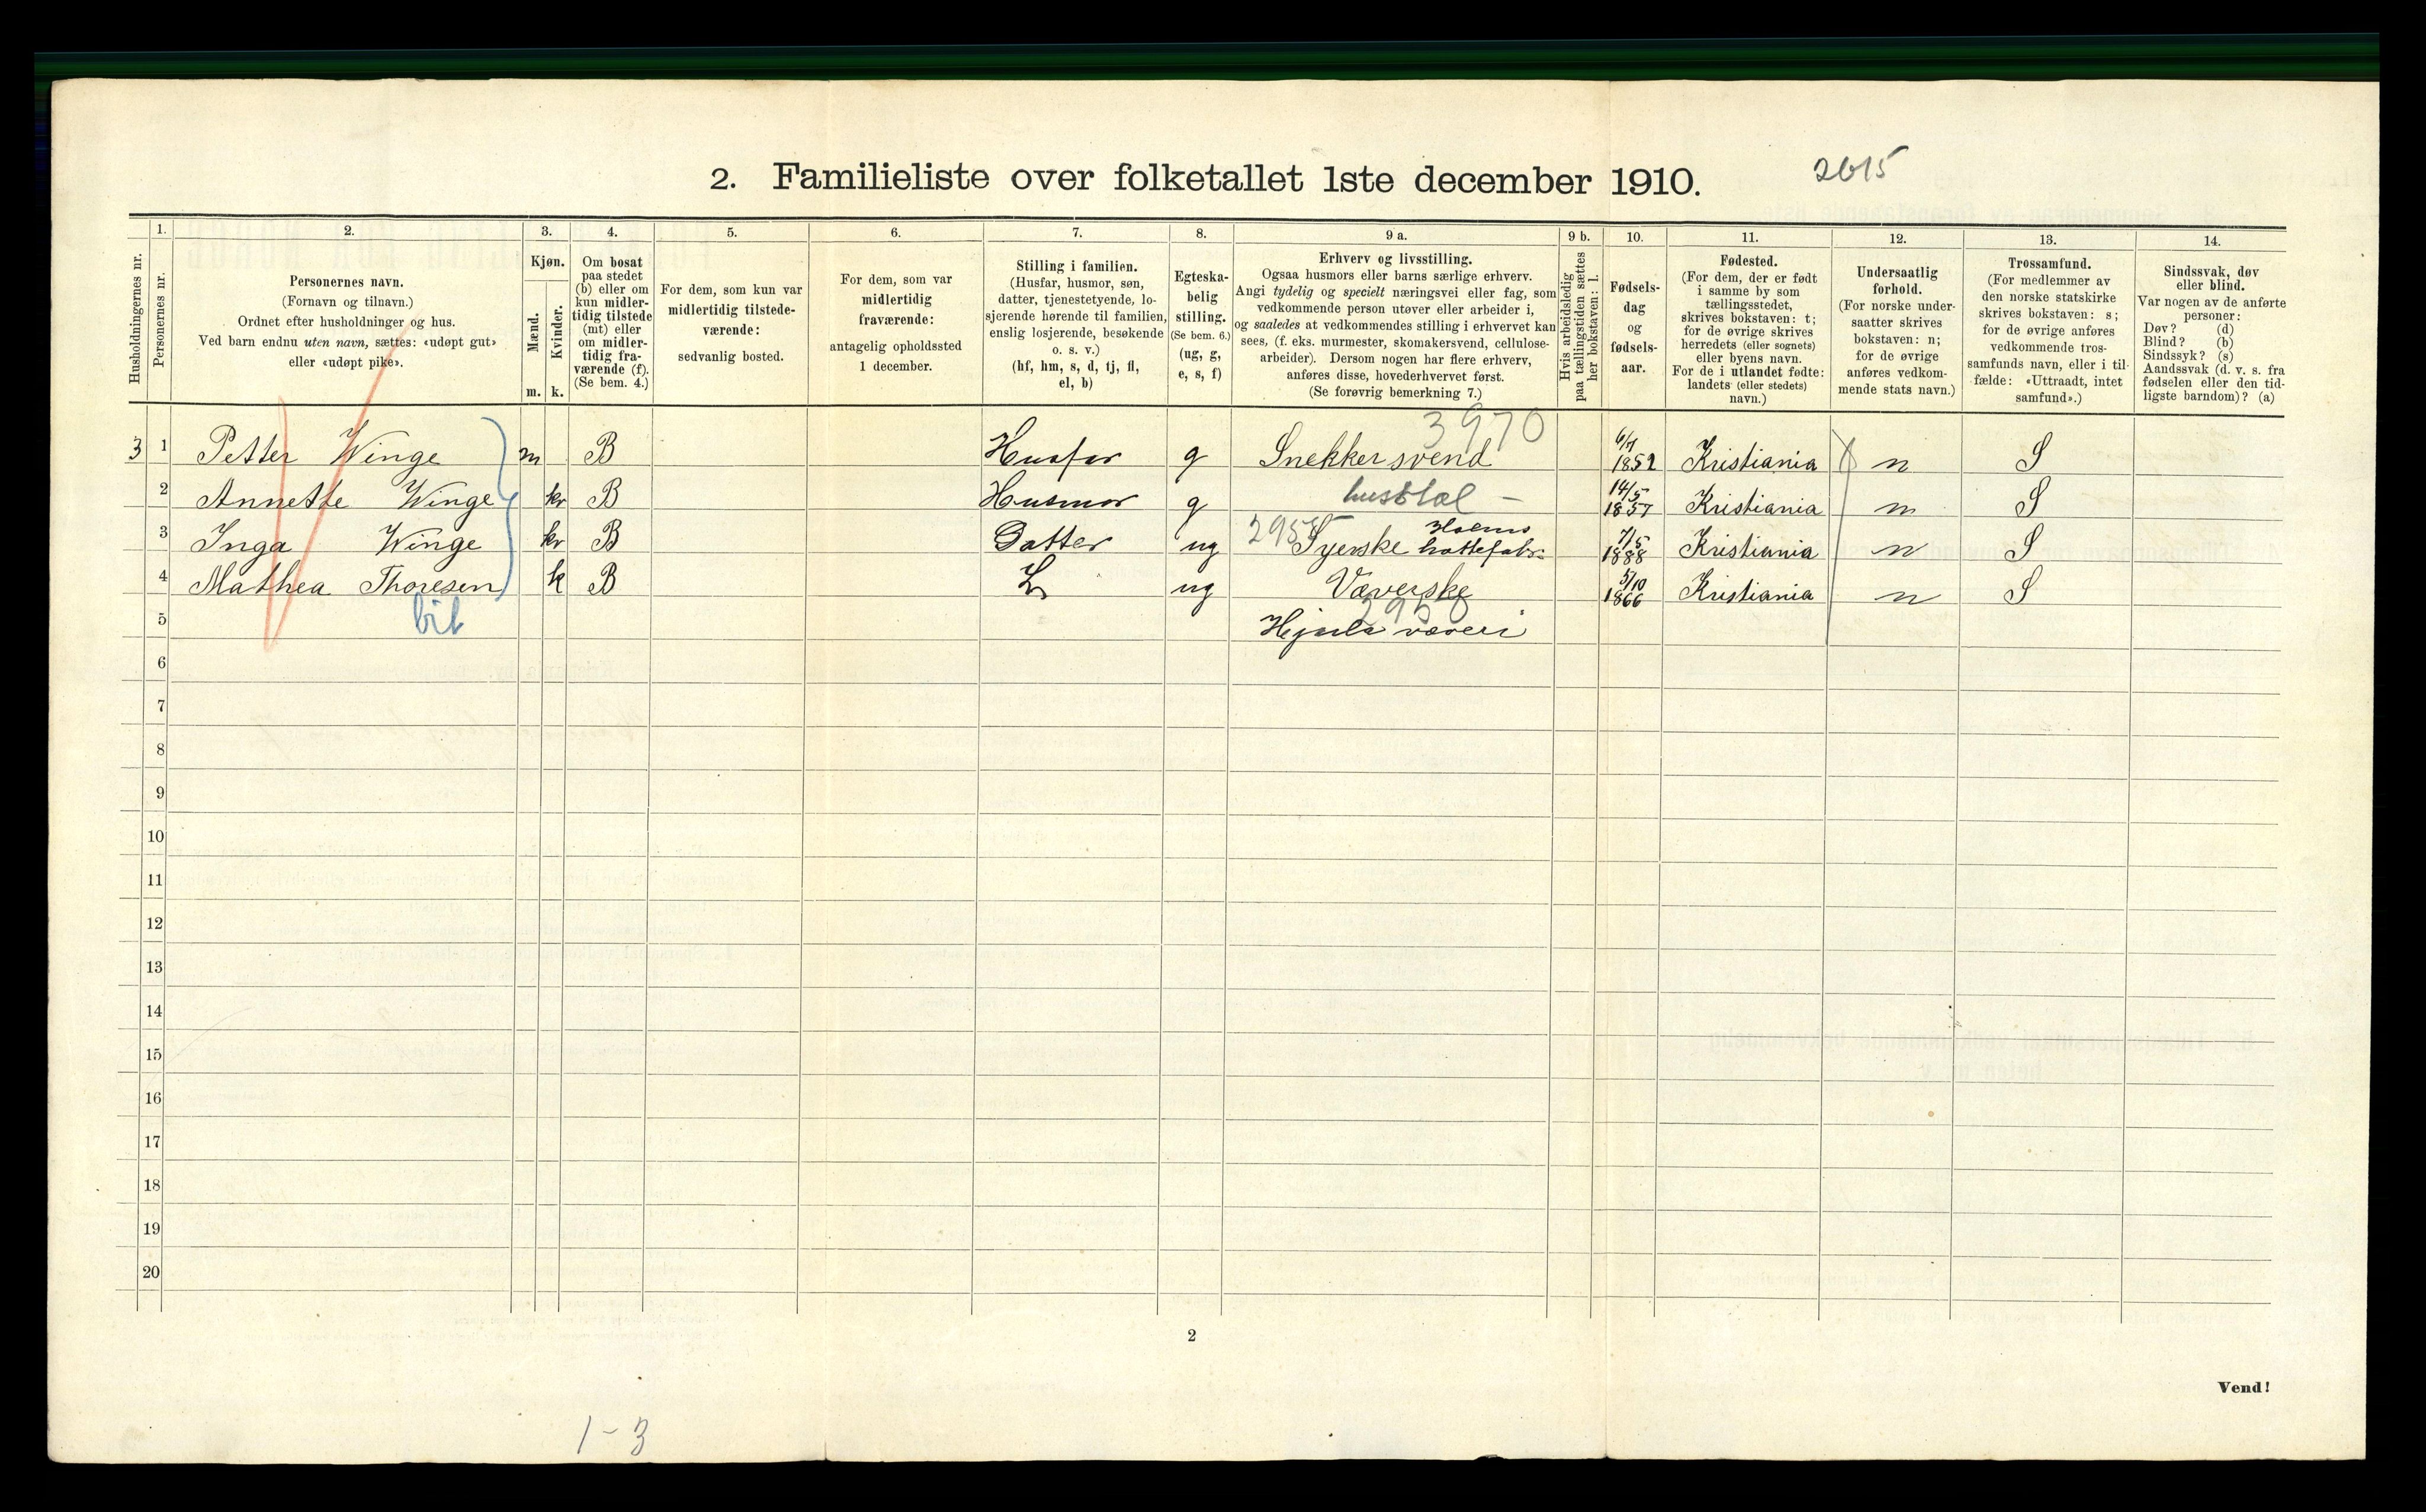 2. Familieliste over folketallet 1ste december 1910.
2615
Husholdningernes nr.
1.
Personernes nr.
2.
Personernes navn.
(Fornavn og tilnavn.)
Ordnet efter husholdninger og hus.
Ved barn endnu uten navn, sættes: «udøpt gut»
eller «udøpt pike».
3.
Kjøn.
Mænd.
Kvinder.
m. k.
4.
Om bosat
paa stedet
(b) eller om
kun midler-
tidig tilstede
(mt) eller
om midler-
tidig fra-
værende (f).
(Se bem. 4.)
5.
For dem, som kun var
midlertidig tilstede-
værende:
sedvanlig bosted.
6.
For dem, som var
midlertidig
fraværende:
antagelig opholdssted
1 december.
7.
Stilling i familien.
(Husfar, husmor, søn,
datter, tjenestetyende, lo-
sjerende hørende til familien,
enslig losjerende, besøkende
o. s. v.)
(hf, hm, s, d, tj, fl,
el, b)
8.
Egteska-
belig
stilling.
(Se bem. 6.)
(ug, g,
e, s, f)
9 a.
Erhverv og livsstilling.
Ogsaa husmors eller barns særlige erhverv.
Angi tydelig og specielt næringsvei eller fag, som
vedkommende person utøver eller arbeider i,
og saaledes at vedkommendes stilling i erhvervet kan
sees, (f. eks. murmester, skomakersvend, cellulose-
arbeider). Dersom nogen har flere erhverv,
anføres disse, hovederhvervet først.
(Se forøvrig bemerkning 7.)
9 b.
Hvis arbeidsledig
paa tællingstiden sættes
her bokstaven: l.
10.
Fødsels-
dag
og
fødsels-
aar.
11.
Fødested.
(For dem, der er født
i samme by som
tællingsstedet,
skrives bokstaven: t;
for de øvrige skrives
herredets (eller sognets)
eller byens navn.
For de i utlandet fødte:
landets (eller stedets)
navn.)
12.
Undersaatlig
forhold.
(For norske under-
saatter skrives
bokstaven: n;
for de øvrige
anføres vedkom-
mende stats navn.)
13.
Trossamfund.
(For medlemmer av
den norske statskirke
skrives bokstaven: s;
for de øvrige anføres
vedkommende tros-
samfunds navn, eller i til-
fælde: «Uttraadt, intet
samfund».)
14.
Sindssvak, døv
eller blind.
Var nogen av de anførte
personer:
Døv? (d)
Blind? (b)
Sindssyk? (s)
Aandssvak (d. v. s. fra
fødselen eller den tid-
ligste barndom)? (a)
3970
3 1 Petter Winge m B Husfar g Snekker svend 6/7 1852 Kristiania n S
2 Annette Winge kv B Husmor g husstel - 14/5 1857 Kristiania n S
3 Inga Winge kv B Datter ug 2955 Syerske Holms hattefabr. 7/5 1888 Kristiania n S
4 Mathea Thoresen k B L ug Væverske 5/10 1866 Kristiania n S
bib 2950
5 Hjula væveri
6
7
8
9
10
11
12
13
14
15
16
17
18
19
20
2
Vend!
1-3